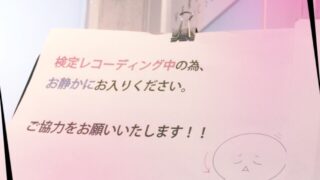 検定レコーディング中の為、
お静かにお入りください。
ご協力をお願いいたします！！